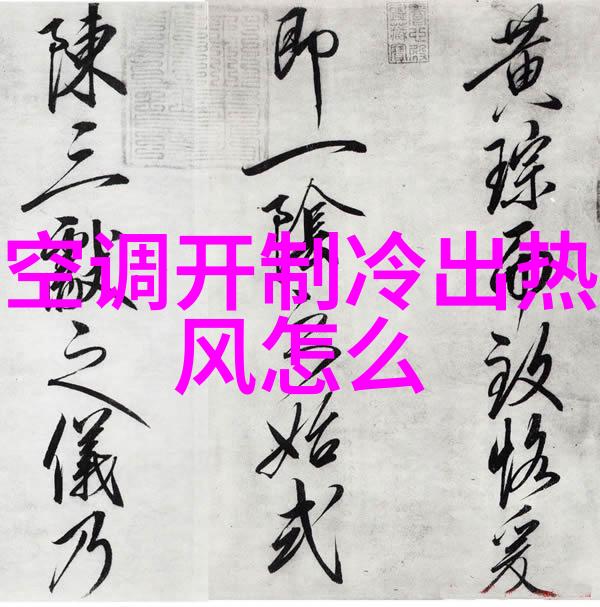 空调开制冷出热
风怎么
黄琮而致恪爰
即一陰始式
陳三獻之儀乃